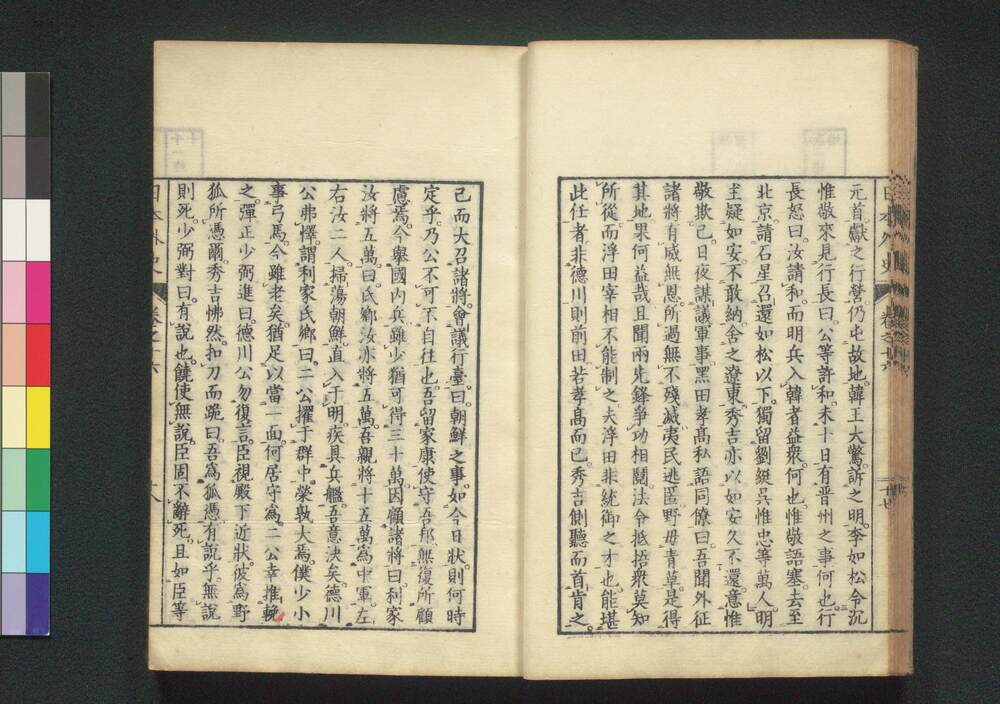 元首獻之行營仍屯故地韓王大驚訴之明李如松令沉
惟敬來見行長曰公等許和未十日有晋州之事何也行
長怒曰汝請和而明兵入韓者益衆何也惟敬語塞去至
北京請石星召還如松以下獨留劉綎吳惟忠等萬人明
主疑如安不敢納舍之遼東秀吉亦以如安久不還意惟
敬欺己日夜謀議軍事黑田孝高私語同僚曰吾聞外征
諸將有威無恩所過無不殘滅夷民逃匿野毋青草是得
其地果何益哉且聞兩先鋒爭功相鬪法令抵捂衆莫知
所從而浮田宰相不能制之夫浮田非統御之才也能堪
此任者非德川則前田若孝高而已秀吉側聽而首肯之
已而大召諸將會議行臺曰朝鮮之事如今日狀則何時
定乎乃公不可不自往也吾留家康使守吾邦無復所顧
慮焉今舉國內兵雖少猶可得三十萬因顧諸將曰利家
汝將五萬曰氏鄉汝亦將五萬吾親將十五萬爲中軍左
右汝二人掃蕩朝鮮直入于明疾具兵艦吾意決矣德川
公弗懌謂利家氏鄉曰二公擢于群中榮孰大焉僕少小
事弓馬今雖老矣猶足以當一面何居守爲二公幸推輓
之彈正少弼進曰德川公勿復言臣視殿下近狀彼爲野
狐所憑爾秀吉怫然扣刀而跪曰吾爲狐憑有說乎無說
則死少弼對曰有說也饒使無說臣固不辭死且如臣等